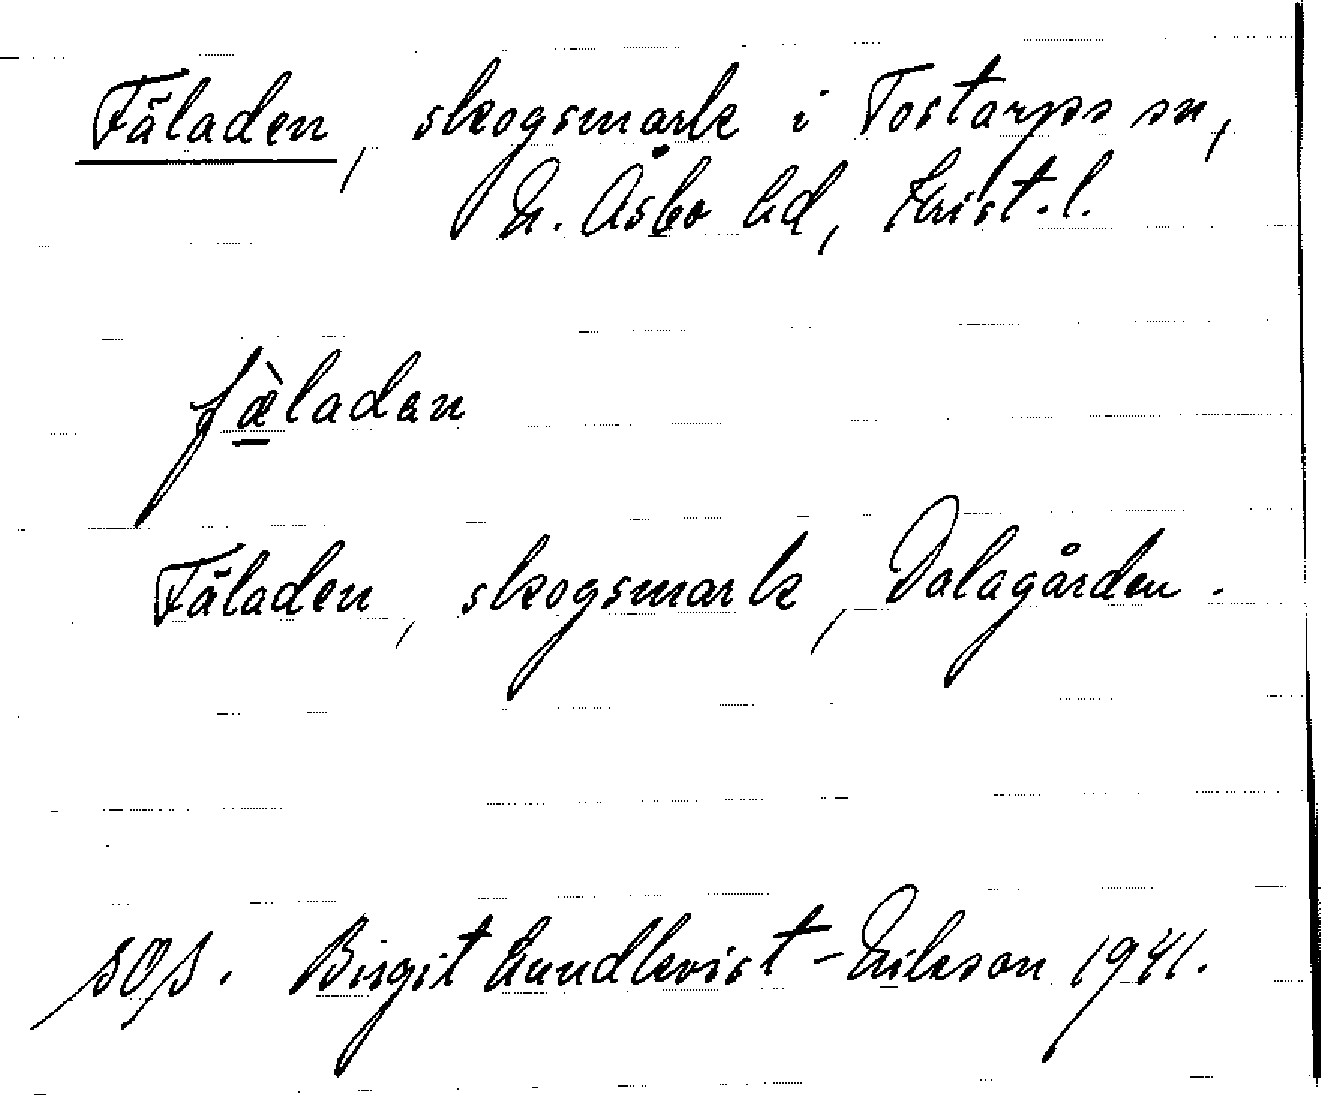 Fäladen, skogsmark i Tostarps sn,
N. Åsbo hd, Krist. l.
fæ̀ladan
Fäladen, skogsmark, Dalagården.
Birgit Lundkvist-Eriksson 1941.